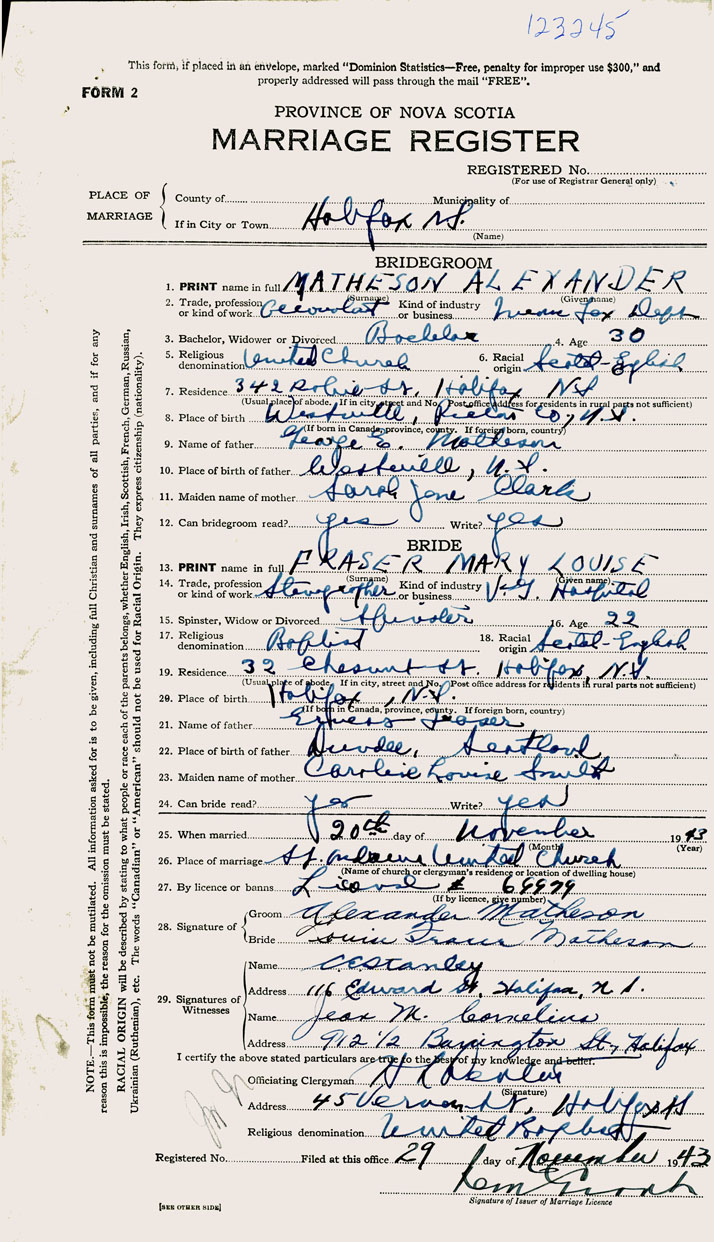 123245
This form, if placed in an envelope, marked "Dominion Statistics—Free, penalty for improper use $300," and
properly addressed will pass through the mail "FREE".
FORM 2
PROVINCE OF NOVA SCOTIA
MARRIAGE REGISTER
REGISTERED No.
(For use of Registrar General only)
PLACE OF MARRIAGE
County of Municipality of
If in City or Town Halifax N.S.
(Name)
BRIDEGROOM
1. PRINT name in full MATHESON ALEXANDER
(Surname) (Given name)
2. Trade, profession or kind of work Kind of industry or business
3. Bachelor, Widower or Divorced Bachelor 4. Age 30
5. Religious denomination United Church 6. Racial origin Scotch-English
7. Residence 342 Robie St. Halifax NS
(Usual place of abode. If in city, street and No. Post office address for residents in rural parts not sufficient)
8. Place of birth Westville, Pictou Co, N.S.
(If born in Canada, province, county. If foreign born, country)
9. Name of father George E. Matheson
10. Place of birth of father Westville, N.S.
11. Maiden name of mother Sarah Jane Clark
12. Can bridegroom read? yes Write? yes
BRIDE
13. PRINT name in full FRASER MARY LOUISE
(Surname) (Given name)
14. Trade, profession or kind of work Stenographer Kind of industry or business V.G. Hospital
15. Spinster, Widow or Divorced Spinster 16. Age 22
17. Religious denomination Baptist 18. Racial origin Scotch-English
19. Residence 32 Chesnut St. Halifax, N.S.
(Usual place of abode. If in city, street and No. Post office address for residents in rural parts not sufficient)
20. Place of birth Halifax, N.S.
(If born in Canada, province, county. If foreign born, country)
21. Name of father Fraser
22. Place of birth of father Dundee, Scotland
23. Maiden name of mother Caroline Louise Smith
24. Can bride read? yes Write? yes
25. When married 20th day of November 1943
(Month) (Year)
26. Place of marriage St. Andrews United Church
(Name of church or clergyman's residence or location of dwelling house)
27. By licence or banns # 69979
(If by licence, give number)
28. Signature of
Groom Alexander Matheson
Bride Louise Fraser Matheson
29. Signatures of Witnesses
Name C.E. Stanley
Address 116 Edward St, Halifax, N S.
Name Jean M. Cornelius
Address 912 1/2 Barrington St., Halifax
I certify the above stated particulars are true to the best of my knowledge and belief.
Officiating Clergyman
(Signature)
Address 45 Vernon St, Halifax NS
Religious denomination United Baptist
Registered No. Filed at this office 29 day of November 1943
Signature of Issuer of Marriage Licence
[SEE OTHER SIDE]
NOTE.—This form must not be mutilated. All information asked for is to be given, including full Christian and surnames of all parties, and if for any
reason this is impossible, the reason for the omission must be stated.
RACIAL ORIGIN will be described by stating to what people or race each of the parents belongs, whether English, Irish, Scottish, French, German, Russian,
Ukrainian (Ruthenian), etc. The words "Canadian" or "American" should not be used for Racial Origin. They express citizenship (nationality).